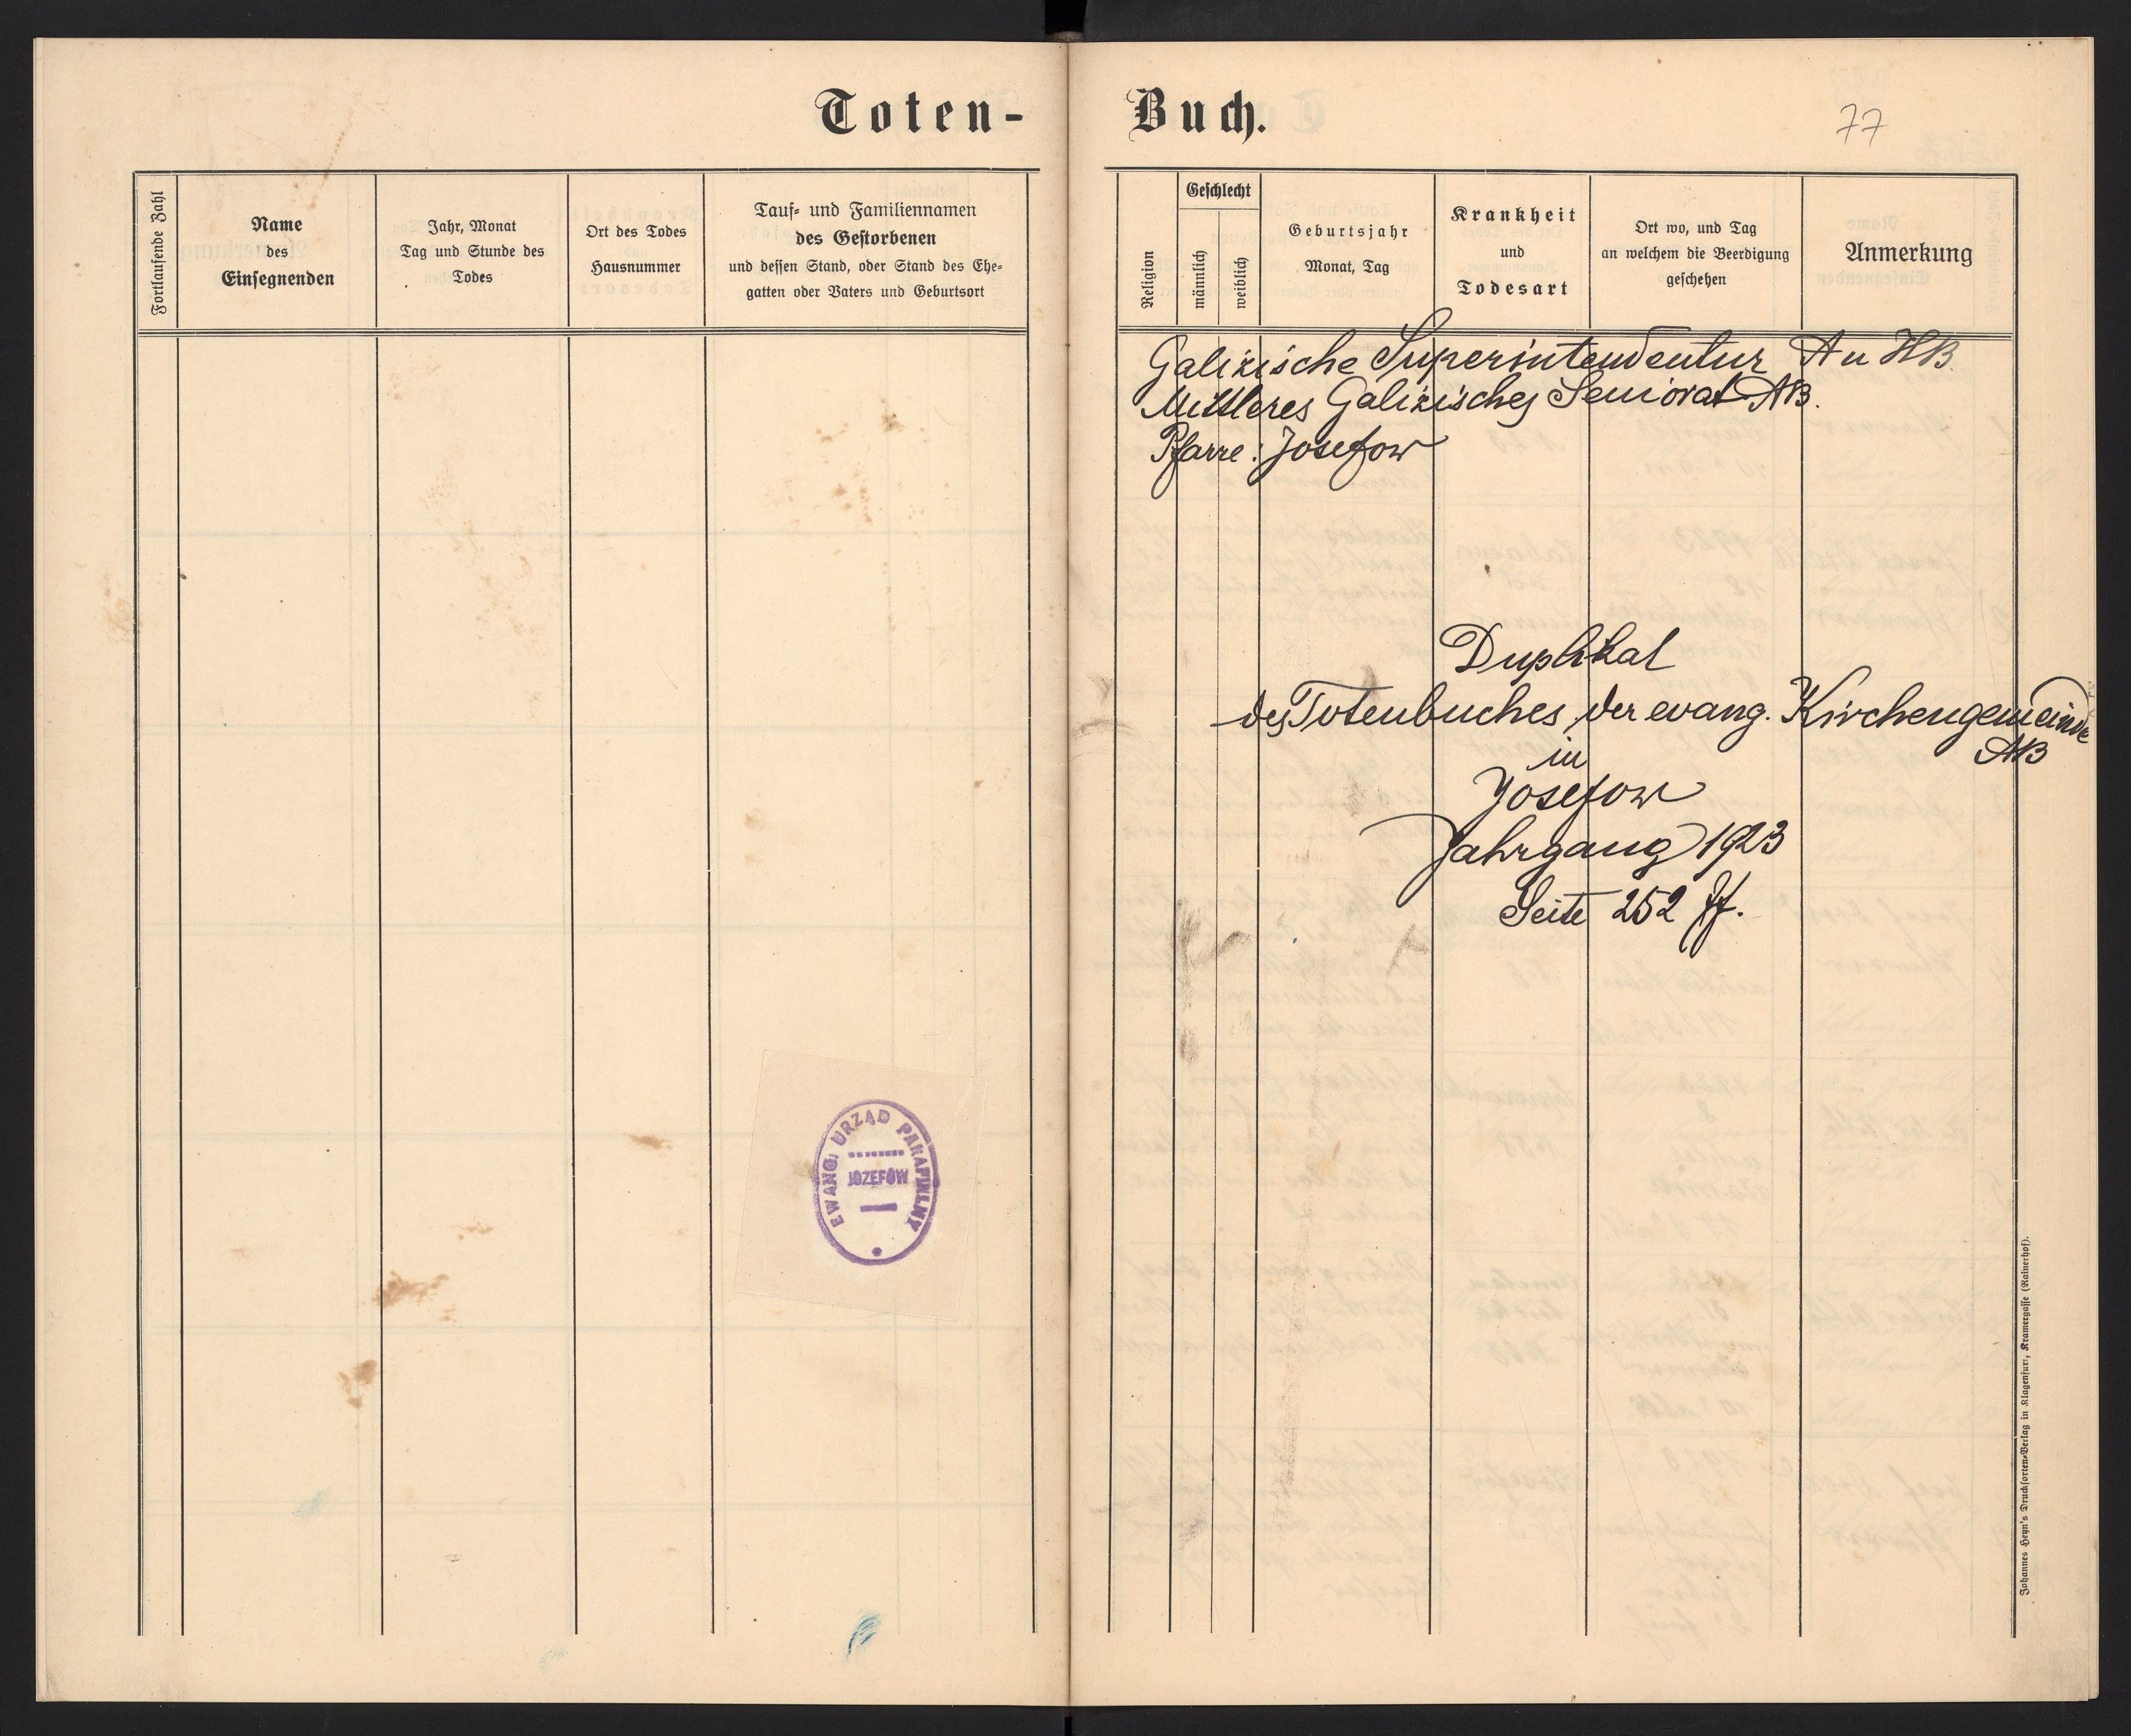 Toten-
Buch.
77
Fortlaufende Zahl
Name
des
Einsegnenden
Jahr, Monat
Tag und Stunde des
Todes
Ort des Todes
Hausnummer
Tauf- und Familiennamen
des Gestorbenen
und dessen Stand, oder Stand des Ehe-
gatten oder Vaters und Geburtsort
Religion
Geschlecht
männlich
weiblich
Geburtsjahr
Monat, Tag
Krankheit
und
Todesart
Ort wo, und Tag
an welchem die Beerdigung
geschehen
Anmerkung
Galizische Superintendentur A u HB.
Mittleres Galizisches Seniorat AB.
Pfarre: Josefow
Duplikat
des Totenbuches der evang. Kirchengemeinde
AB
in
Josefow
Jahrgang 1923
Seite 252 ff.
EWANG. URZĄD PARAFIALNY
JÓZEFÓW
Johannes Heyn's Drucksorten-Verlag in Klagenfurt, Kramergasse (Rainerhof).